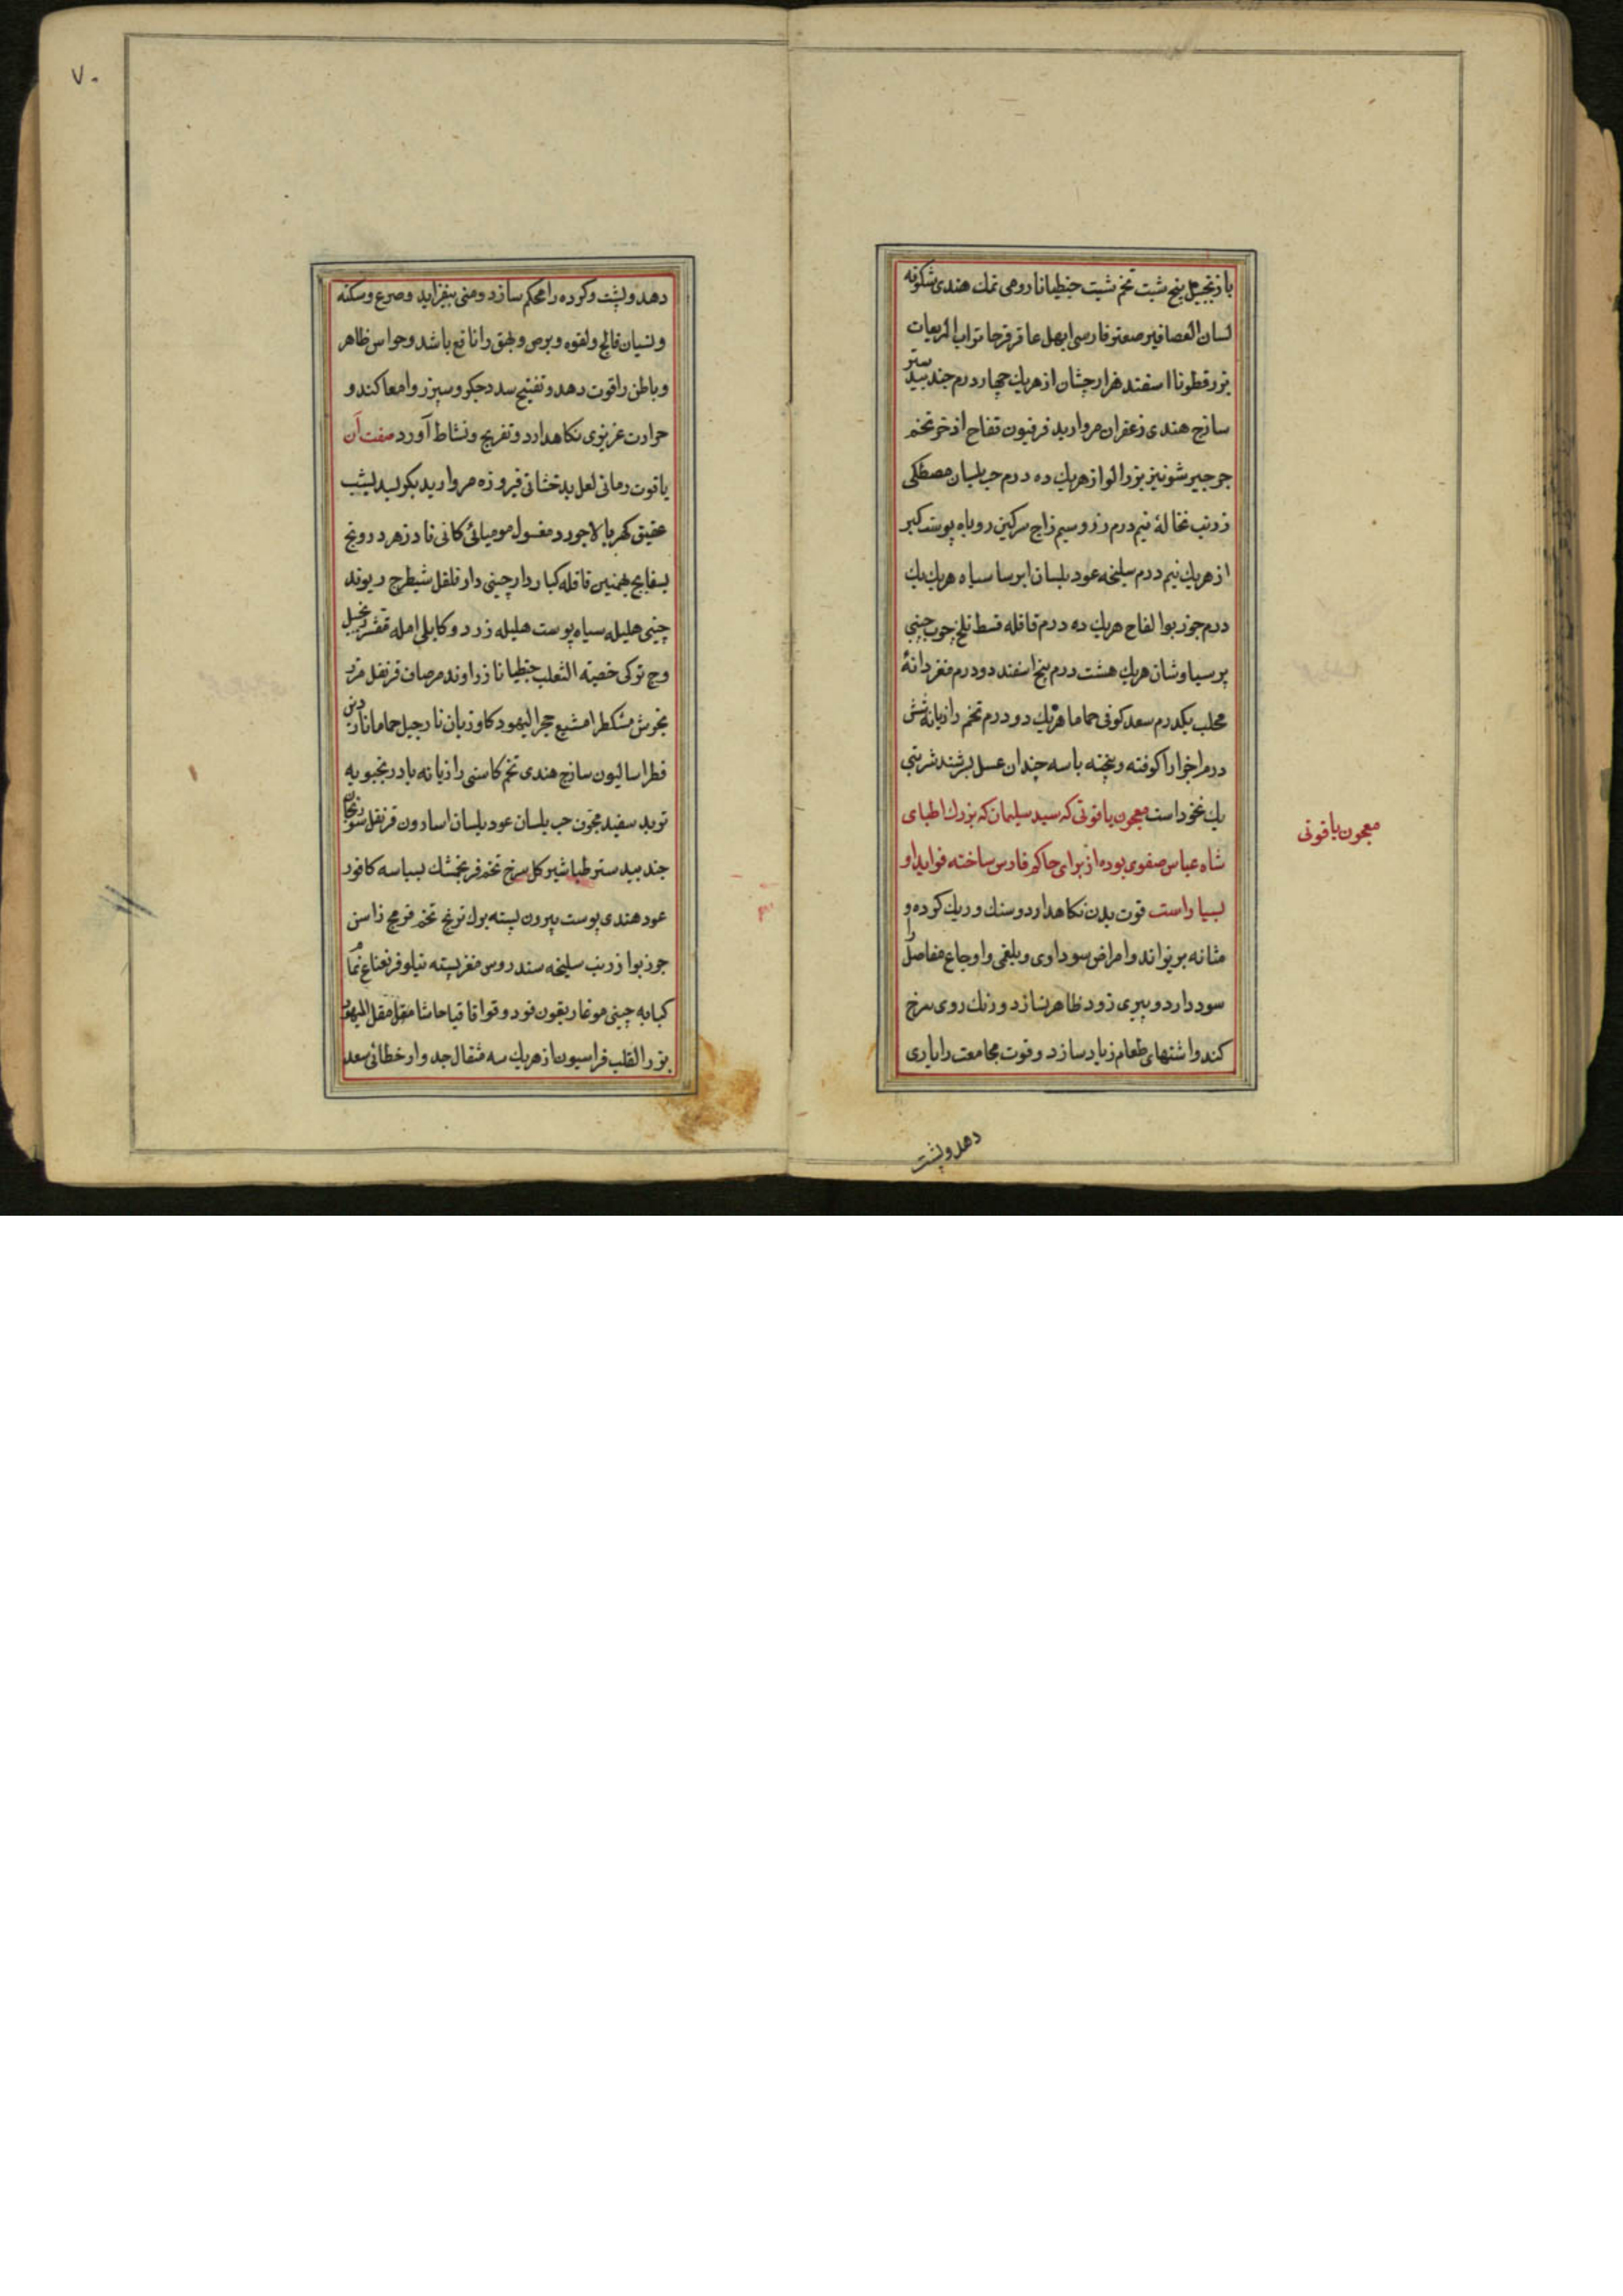 با زنجبیل بیخ شبت تخم شبت جنطیانا رومی نمك هندی شکوفه
لسان العصافیر صعتر فارسی ابهل عاقرقرحا تراب المربعات
بزر قطونا اسفند هزارجشان از هریك چهار درم جندبیدستر
ساذج هندی زعفران مروارید فرفیون تفاح اذخر تخم
جرجیر شونیز بزر الوا از هریك ده درم حب بلسان مصطکی
زرنب نخالهٔ نیم درم زر و سیم زاج سرکین روباه پوست کبر
از هریك نیم درم سلیخه عود بلسان ایرسا سیاه هریك یك
درم جوز بوا لفاح هریك ده درم قاقله قسط تلخ چوب چینی
پرسیاوشان هریك هشت درم بیخ اسفند دو درم مغز دانهٔ
محلب یکدرم سعد کوفی حماما هریك دو درم تخم رازیانه شش
درم اجزا را کوفته و بیخته با سه چندان عسل بسرشند شربتی
یك نخود است معجون یاقوتی که سید سلیمان که بزرك اطبای
معجون یاقوتی
شاه عباس صفوی بوده از برای حاکم فارس ساخته فواید او
بسیار است قوت بدن نکاهدارد و سنك و ریك کرده و
مثانه بریزاند و امراض سوداوی و بلغمی و اوجاع مفاصل را
سود دارد و پیری زود ظاهر نسازد و رنك روی سرخ
کند و اشتهای طعام زیاد سازد و قوت مجامعت را یاری
دهد و پشت
۷۰
دهد و پشت و کرده را محکم سازد و منی بیفزاید و صرع و سکته
و نسیان فالج و لقوه و برص و بهق را نافع باشد و حواس ظاهر
و باطن را قوت دهد و تفتیح سدد جکر و سپرز و امعا کند و
حرارت غریزی نکاهدارد و تفریح و نشاط آورد صفت آن
یاقوت رمانی لعل بدخشانی فیروزه مروارید بکر بسد یشب
عقیق کهربا لاجورد مغسول مومیائی کانی فادزهر درونج
بسفایج بهمنین قاقله کبار دارچینی دارفلفل شیطرج ریوند
چینی هلیله سیاه پوست هلیله زرد و کابلی امله مقشر زنجبیل
وج ترکی خصیته الثعلب جنطیانا زراوند مرصاف قرنفل
مشکطرامشیع حجر الیهود کاوزبان نارجیل حماما
فطراسالیون ساذج هندی تخم کاسنی رازیانه بادرنجبویه
تربد سفید مجوّن حب بلسان عود بلسان اسارون قرنفل سورنجان
جندبیدستر طباشیر کل سرخ تخم فرنجمشك بسباسه کافور
عود هندی پوست بیرون پسته برك ترنج تخم راسن
جوزبوا زرنب سلیخه سندروس مغز پسته نیلوفر نعناع
کبابه چینی مو غاریقون فود وقوا قاقیا حاشا مقل مقل الیهود
بزر القلب فراسیون از هریك سه مثقال جدوار خطائی سعد